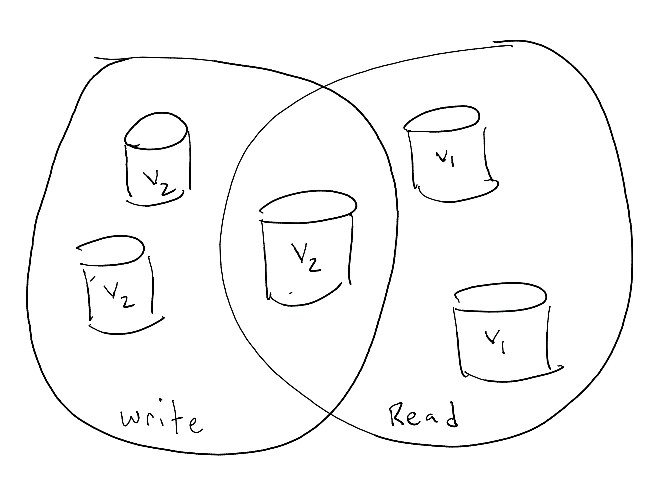 V2
V1
V2
V2
V1
write
Read